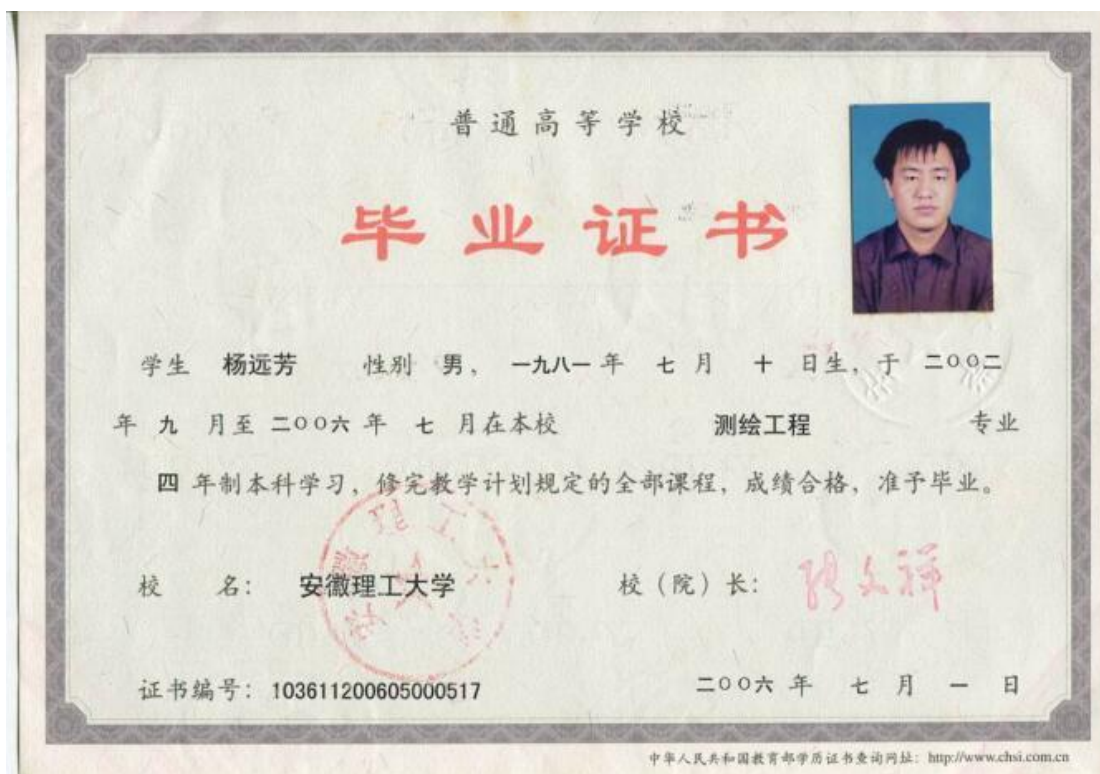 普通高等学校
毕业证书
学生 杨远芳 性别 男，一九八一年 七月 十 日生，于 二〇〇二
年 九 月至 二〇〇六 年 七 月在本校 测绘工程 专业
四 年制本科学习，修完教学计划规定的全部课程，成绩合格，准予毕业。
校 名： 安徽理工大学 校（院）长： 张文祥
证书编号：103611200605000517 二〇〇六 年 七 月 一 日
中华人民共和国教育部学历证书查询网址：http://www.chsi.com.cn